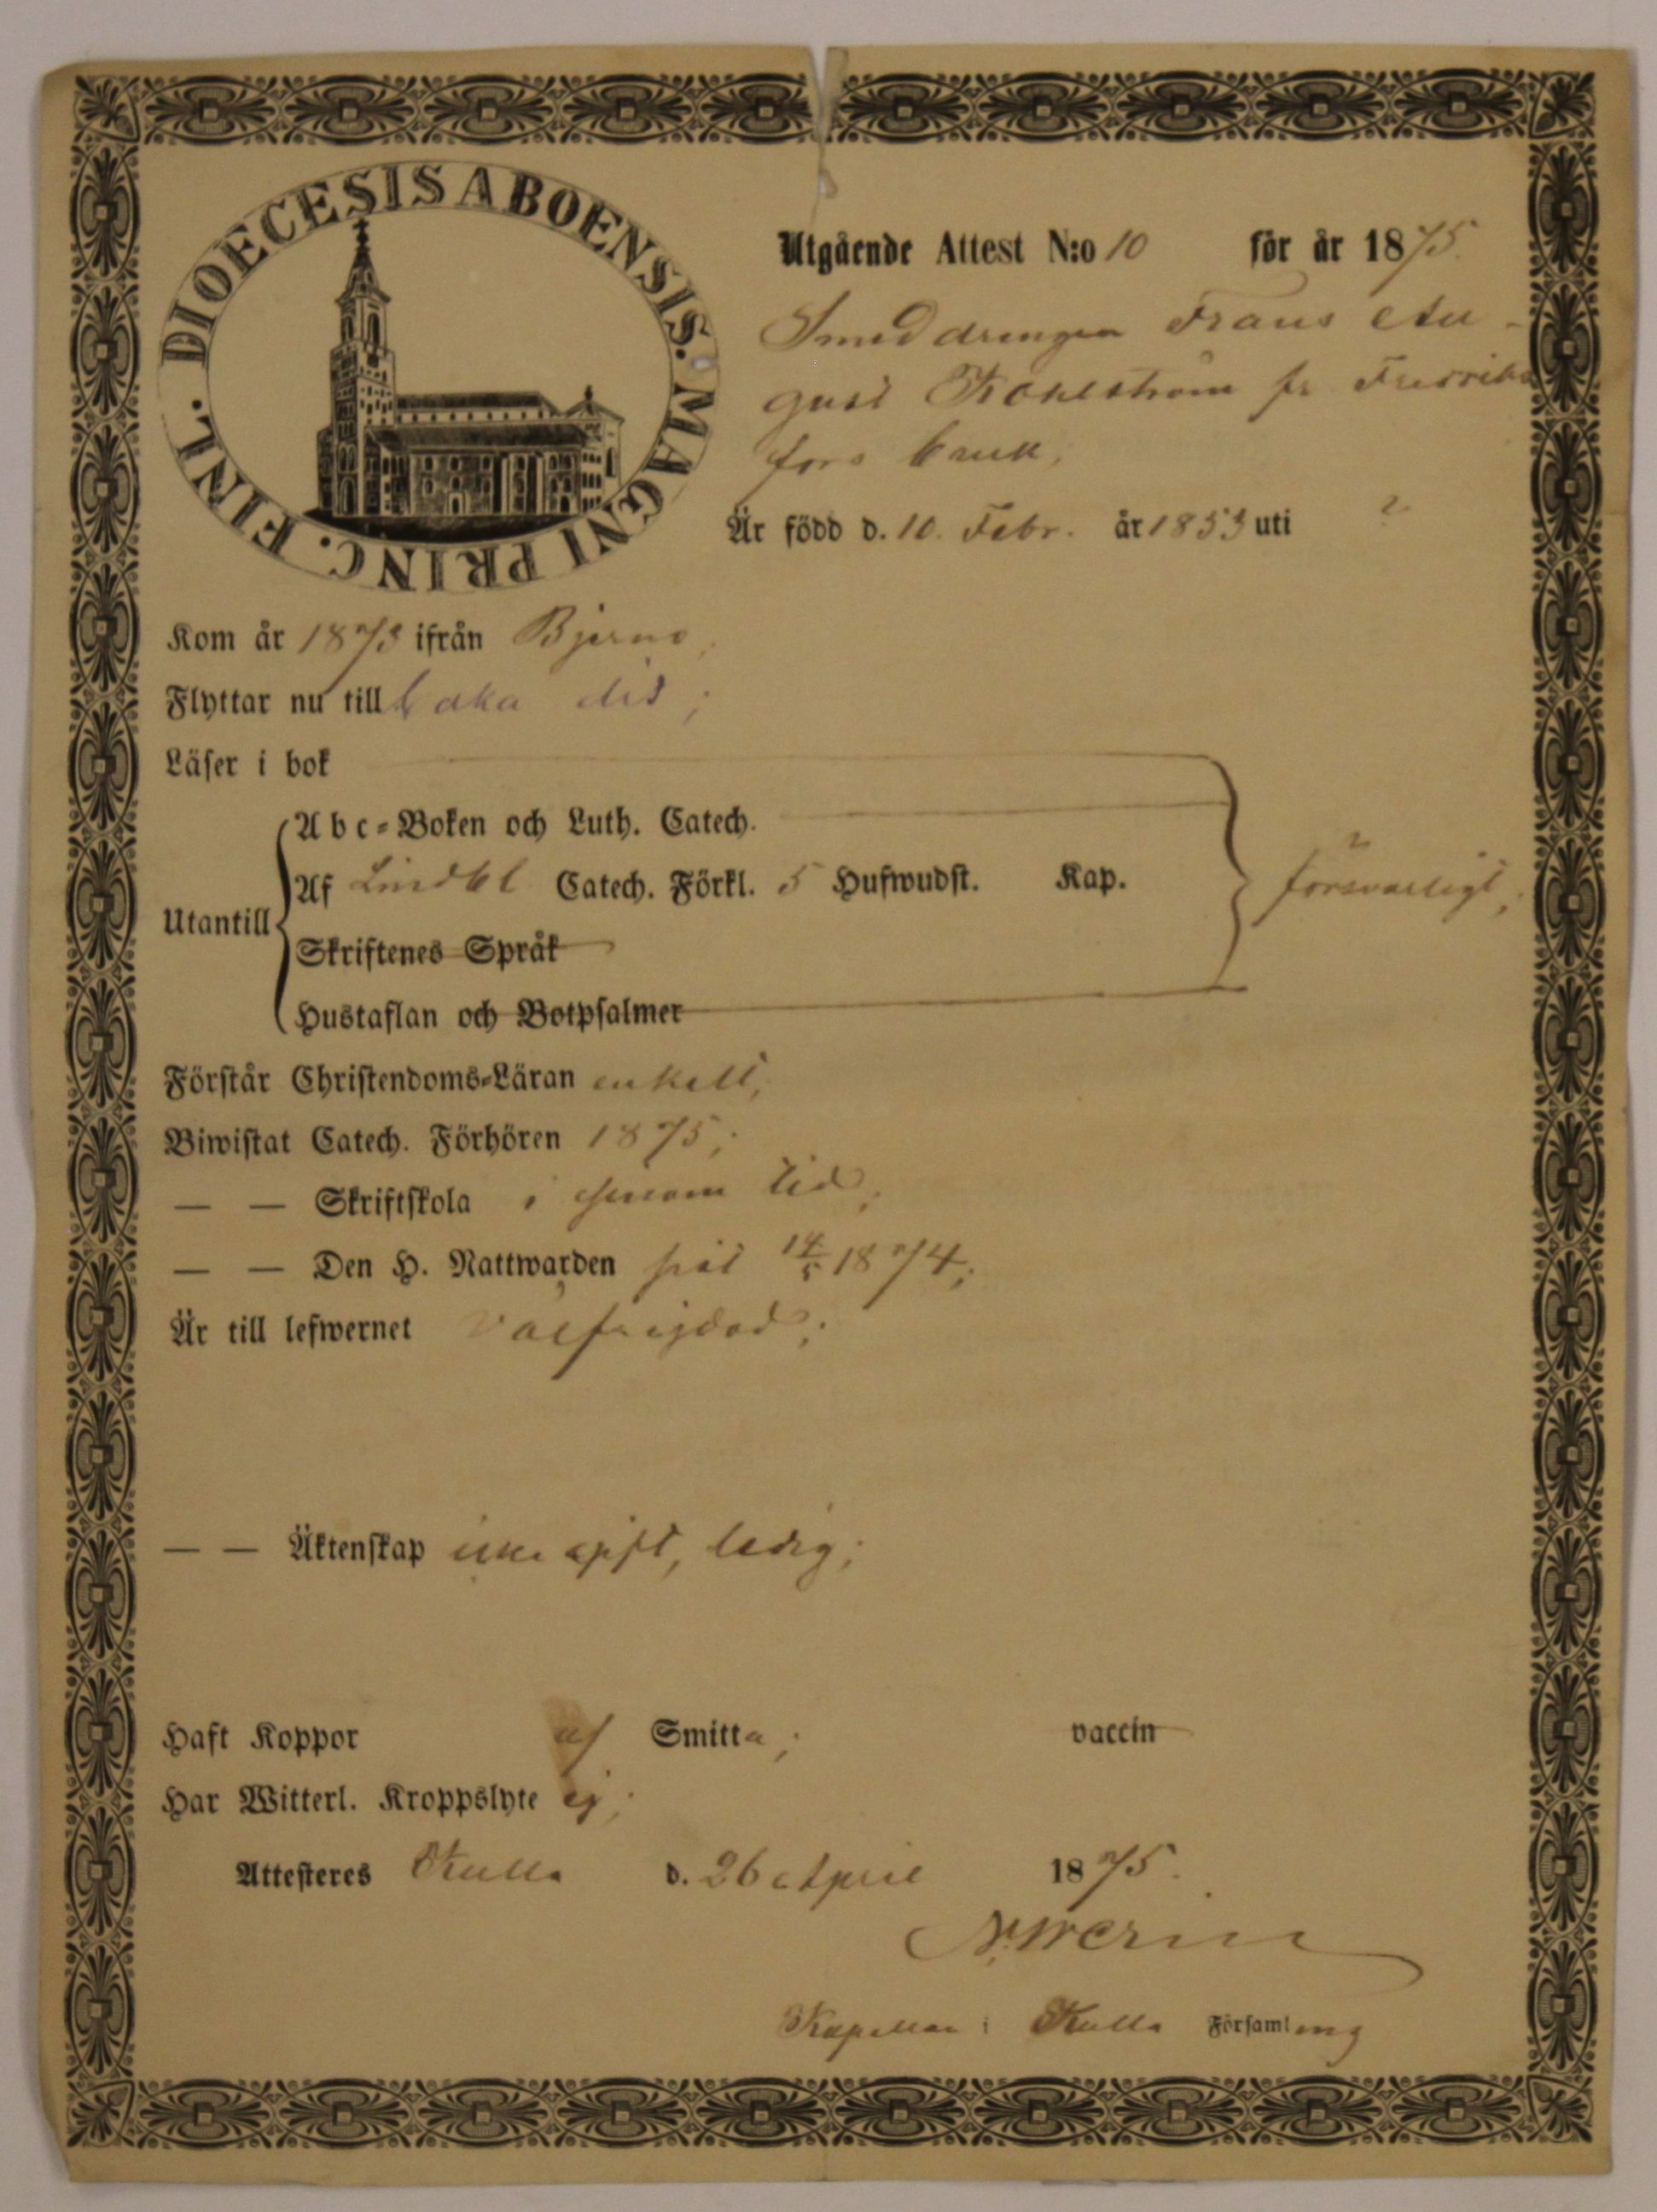 DIOECESIS ABOENSIS. MAGNI PRINC. FINL.
Utgående Attest N:o 10 för år 1875.
Smeddrengen Frans Au-
gust Kohlström fr. Fredriks
fors bruk,
Är född d. 10. Febr. år 1853 uti ?
Kom år 1873 ifrån Bjerno,
Flyttar nu tillbaka dit;
Läser i bok
Abc-Boken och Luth. Catech.
Utantill Af Lindbl. Catech. Förkl. 5 Hufwudst. Kap. försvarligt;
Skriftenes Språk
Hustaflan och Botpsalmer
Förstår Christendoms-Läran enkelt;
Biwistat Catech. Förhören 1875;
— — Skriftskola i sinom tid;
— — Den H. Nattwarden sist 14/5 1874;
Är till lefwernet välfrejdad;
— — Äktenskap icke gift, ledig;
Haft Koppor af Smitta; vaccin
Har Witterl. Kroppslyte ej;
Attesteres Kulla d. 26 April 1875.
Kapellan i Kulla Församling